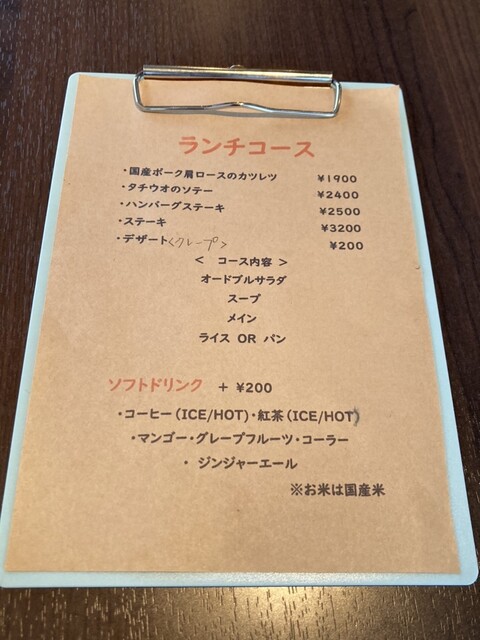 ランチコース
・国産ポーク肩ロースのカツレツ ¥1900
・タチウオのソテー ¥2400
・ハンバーグステーキ ¥2500
・ステーキ ¥3200
・デザート<クレープ> ¥200
< コース内容 >
オードブルサラダ
スープ
メイン
ライス OR パン
ソフトドリンク + ¥200
・コーヒー(ICE/HOT)・紅茶(ICE/HOT)
・マンゴー・グレープフルーツ・コーラー
・ ジンジャーエール
※お米は国産米